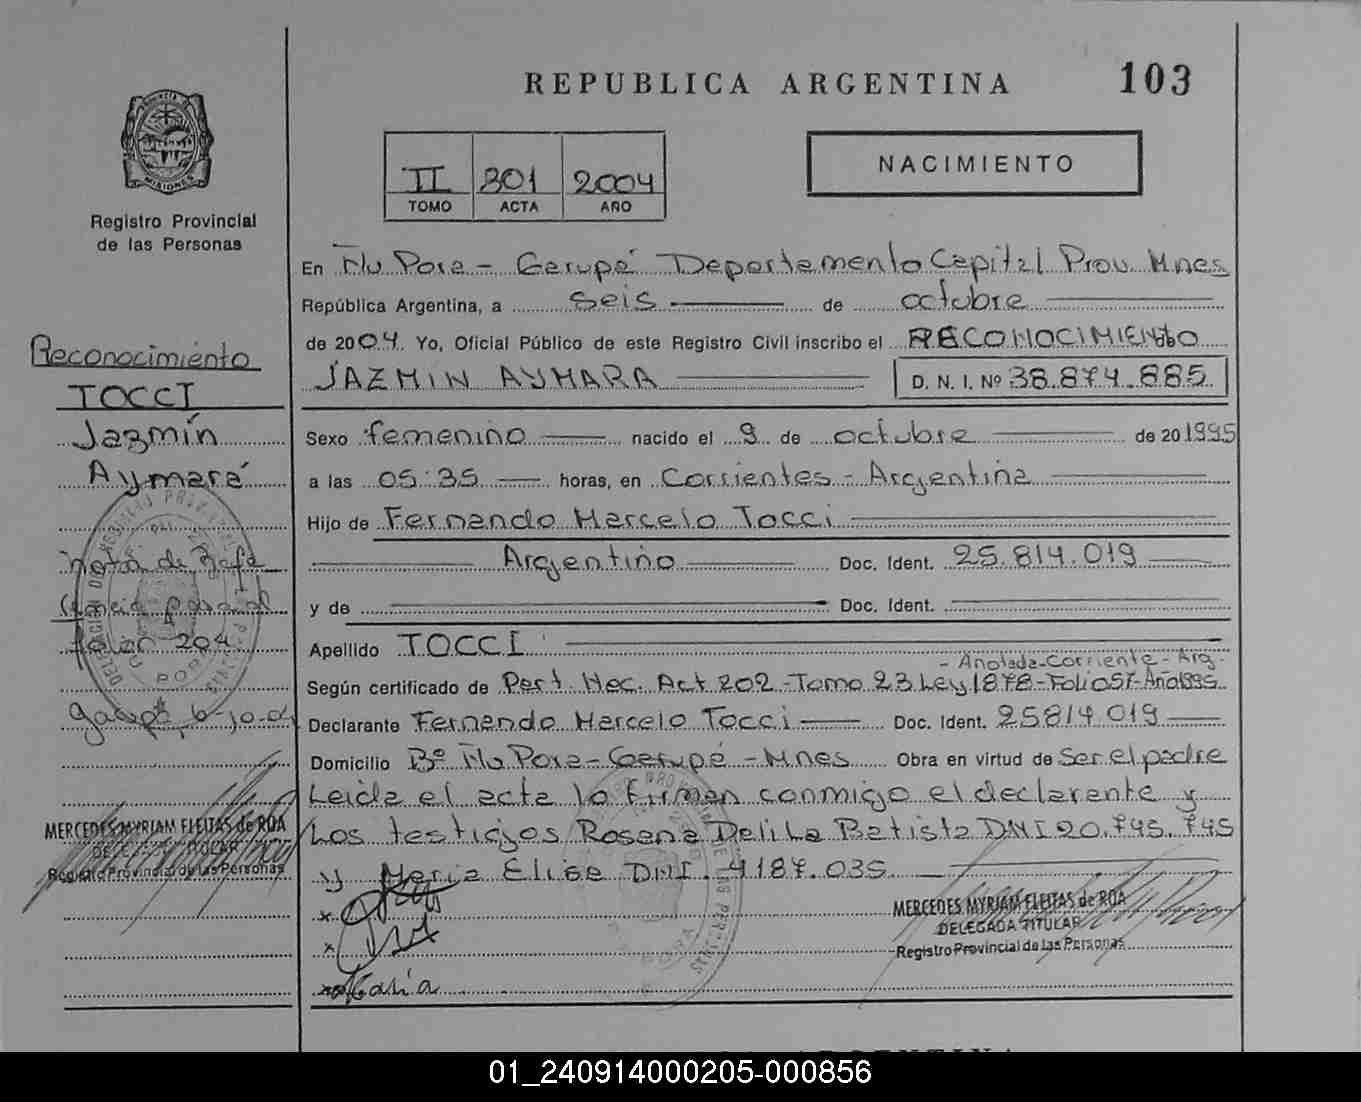 REPUBLICA ARGENTINA
103
PROVINCIA DE
MISIONES
Registro Provincial
de las Personas
II 301 2004
TOMO ACTA AÑO
NACIMIENTO
En Ñu Pora - Garupá Departamento Capital Prov. Mnes
República Argentina, a seis de octubre
de 2004. Yo, Oficial Público de este Registro Civil inscribo el RECONOCIMIENTO
JAZMIN AYMARA D. N. I. Nº 38.874.885
Sexo femenino nacido el 9 de octubre de 201995
a las 05:35 horas, en Corrientes - Argentina
Hijo de Fernando Marcelo Tocci
Argentino Doc. Ident. 25.814.019
y de Doc. Ident.
Apellido TOCCI
- Anotada-Corriente-Arg-
Según certificado de Pert. Nec. Act 202 - Tomo 23 Ley 1878-Folio 57-Año 1995
Declarante Fernando Marcelo Tocci Doc. Ident. 25814.019
Domicilio Bº Ñu Pora - Garupá - Mnes Obra en virtud de Ser el padre
Leida el acta lo firman conmigo el declarante y
Los testigos Rosana Delila Batista DNI 20.745.745
y Maria Elisa DNI. 4187.035
x
x
Maria
MERCEDES MYRIAM FLEITAS de ROA
DELEGADA TITULAR
Registro Provincial de las Personas
Reconocimiento
TOCCI
Jazmín
Aymará
Nota de
204
6-10-04
MERCEDES MYRIAM FLEITAS de ROA
DELEGADA TITULAR
Registro Provincial de las Personas
01_240914000205-000856